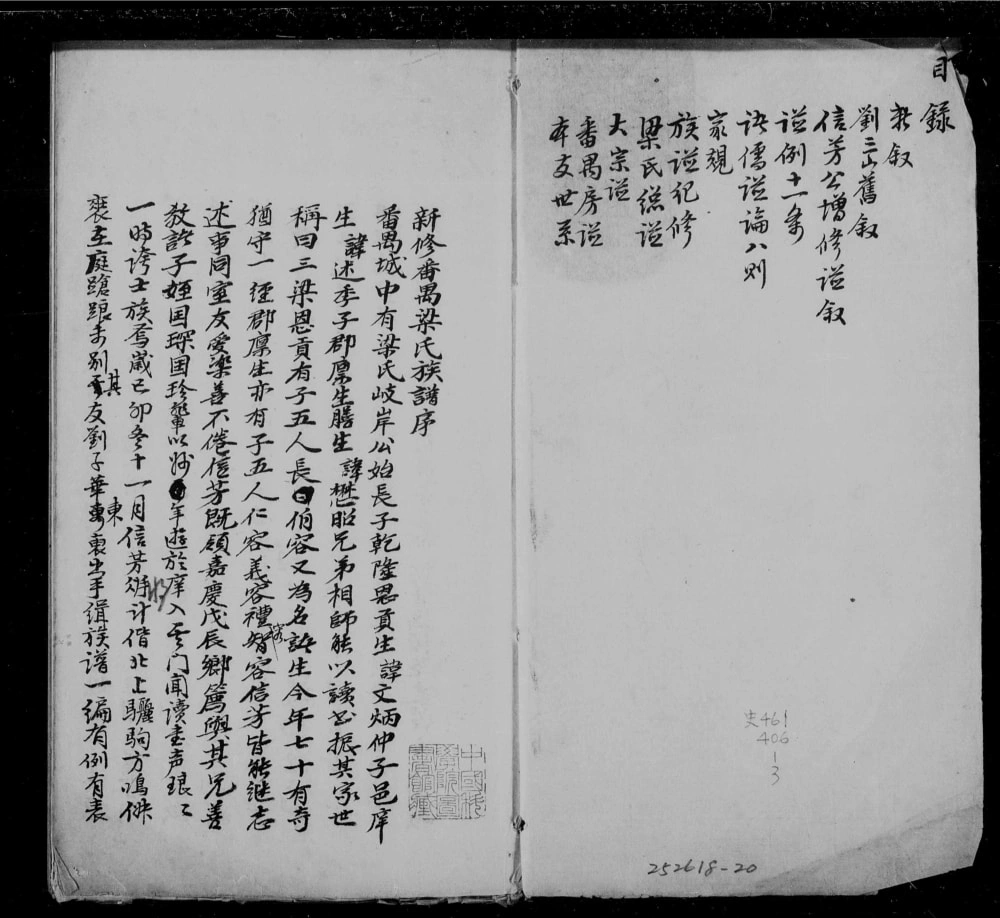 目錄
新叙
劉三山舊叙
信芳公增修谥叙
谥例十一条
諸儒谥論八则
家規
族谥纪修
梁氏總谥
大宗谥
番禺房谥
本支世系
新修番禺梁氏族譜序
番禺城中有梁氏岐岸公始長子乾隆恩貢生諱文炳仲子邑庠
生諱述季子郡廪生膳生諱懋昭兄弟相師能以讀书振其家世
稱曰三梁恩貢有子五人長曰伯容又為名諸生今年七十有奇
猶守一經郡廪生亦有子五人仁容義容禮容智容信芳皆能继志
述事同室友愛樂善不倦信芳既領嘉慶戊辰鄉薦與其兄善
教諸子姪国琛国珍輩以妙年遊於庠入其门闻读書声琅〻
一時誇士族焉歲己卯冬十一月信芳将计偕北上驪驹方鳴僕
裝在庭蹌踉未别其友劉子華東衷出手缉族谱一編有例有表
中國科學院圖書館藏
史461
406
1
3
252618-20